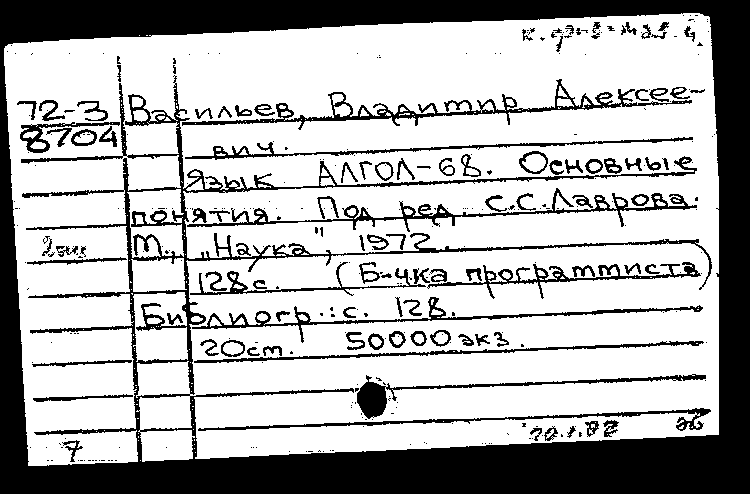 к. физ-мат. ч.
72-3 Васильев, Владимир Алексее-
8704 вич.
Язык АЛГОЛ-68. Основные
понятия. Под ред. С.С.Лаврова.
М., „Наука", 1972.
128с. (Б-чка программиста)
Библиогр.: с. 128.
20ст. 50000экз.
7